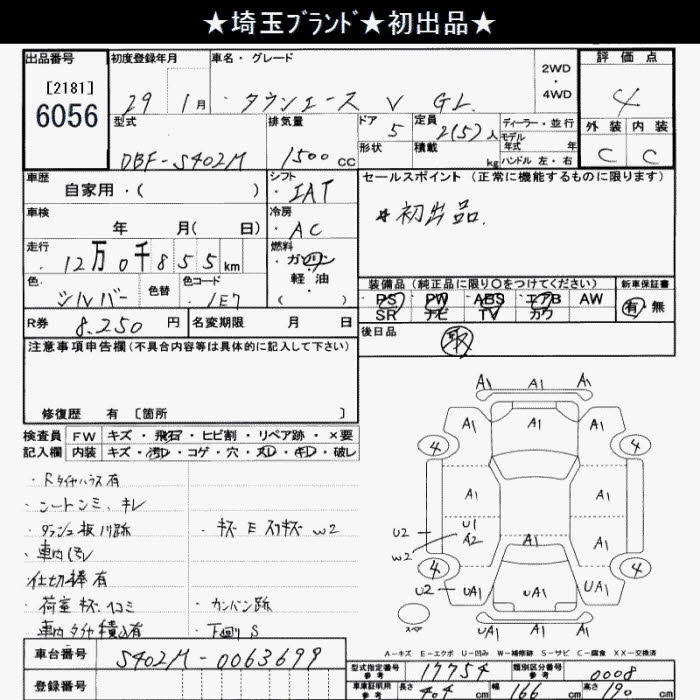 ★埼玉ﾌﾞﾗﾝﾄﾞ★初出品★
出品番号 初度登録年月 車名・グレード 2WD・4WD 評価点
[2181]
6056
29 1月 タウンエース V GL 4
型式 排気量 ドア 5 定員 2(5)人 ディーラー・並行 外装 内装
DBF-S402M 1500cc 形状 積載 kg モデル年式 年 ハンドル 左・右 C C
車歴 自家用・( ) シフト IAT セールスポイント (正常に機能するものに限ります)
車検 年 月( 日) 冷房 AC 初出品
走行 12万0千855km 燃料 ガソリン 軽油 ( )
色 シルバー 色替 色コード 1E7
装備品 (純正品に限り○をつけてください) 新車保証書
PS PW ABS エアB AW 有・無
SR ナビ TV カワ
R券 8,250円 名変期限 月 日
後日品 取
注意事項申告欄(不具合内容等は具体的に記入して下さい)
修復歴 有 [箇所 ]
検査員 FW キズ・飛石・ヒビ割・リペア跡・×要
記入欄 内装 キズ・汚れ・コゲ・穴・スレ・キレ・破レ
・Rタイヤハウス有
・シートシミ、キレ
・ダッシュ板ハリ跡 ・キズ E スリキズ W2
・車内汚レ
仕切棒有
・荷室キズ、ヘコミ ・カンバン跡
車内タイヤ積込有 ・下回りS
A1 A1 A1
A1 A1 A1
4 4
A1 A1
U2 U1
W2 A2 A1
4 4
U2 UA1 UA1 UA1
スペア
UA1 A1 UA1
A－キズ E－エクボ U－凹み W－補修跡 S－サビ C－腐食 XX－交換済
車台番号 S402M-0063699
登録番号
型式指定番号 参考 17754 類別区分番号 参考 0008
車庫証明用 参考 長さ 404cm 幅 166cm 高さ 190cm